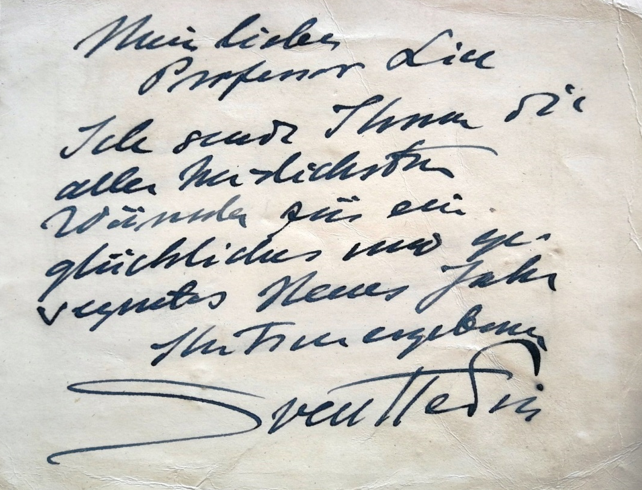 Mein lieber
Professor Lill
Ich sende Ihnen die
aller herzlichsten
Wünsche für ein
glückliches und ge-
segnetes Neues Jahr
Ihr Treu ergebener
Sven Hedin